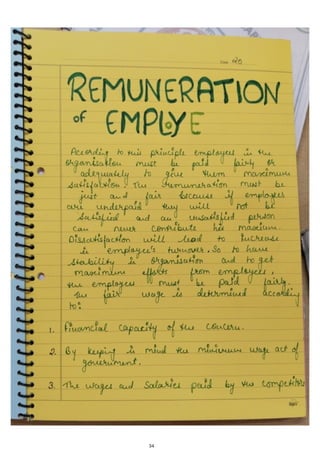 Date 20
REMUNERATION
of EMPLYE
According to this principle employees in the
organisation must be paid fairly or
adequately to give them maximum
satisfaction. The remuneration must be
just and fair because if employees
are underpaid they will not be
satisfied and an unsatisfied person
can never contribute his maximum.
Dissatisfaction will lead to increase
in employee's turnover. So to have
stability in organisation and to get
maximum efforts from employees,
the employees must be paid fairly.
The fair wage is determined according
to:
1. Financial capacity of the concern.
2. By keeping in mind the minimum wage act of
government.
3. The wages and salaries paid by the competitors
34